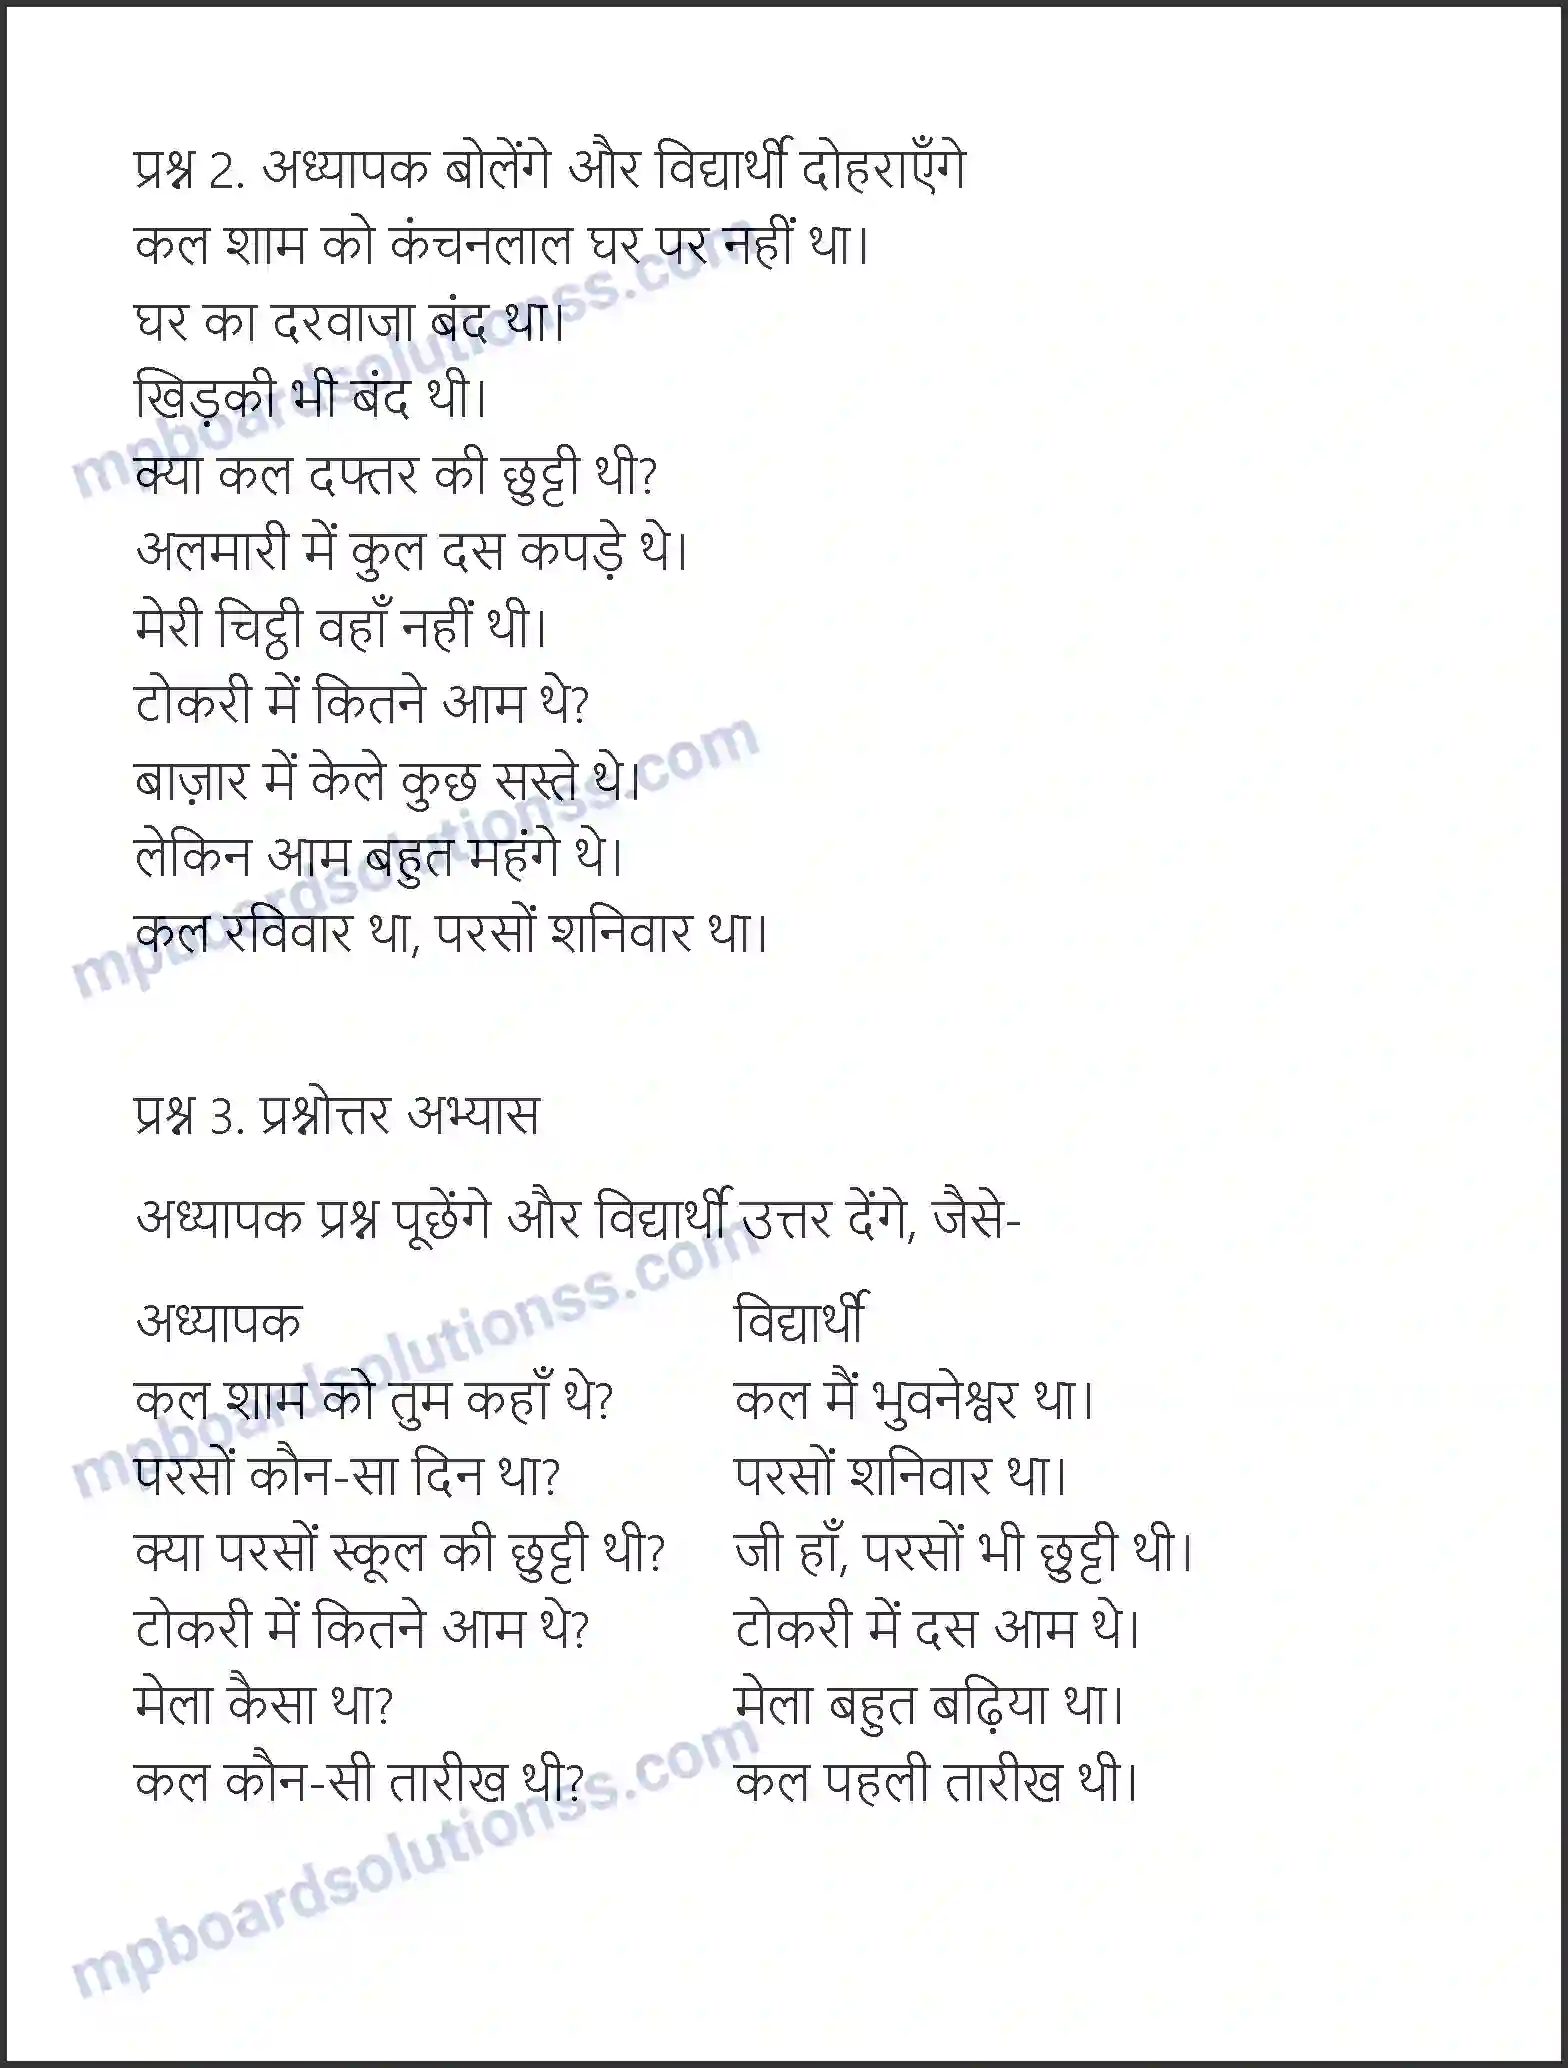 प्रश्न 2. अध्यापक बोलेंगे और विद्यार्थी दोहराएँगे
कल शाम को कंचनलाल घर पर नहीं था।
घर का दरवाजा बंद था।
खिड़की भी बंद थी।
क्या कल दफ्तर की छुट्टी थी?
अलमारी में कुल दस कपड़े थे।
मेरी चिट्ठी वहाँ नहीं थी।
टोकरी में कितने आम थे?
बाज़ार में केले कुछ सस्ते थे।
लेकिन आम बहुत महंगे थे।
कल रविवार था, परसों शनिवार था।
प्रश्न 3. प्रश्नोत्तर अभ्यास
अध्यापक प्रश्न पूछेंगे और विद्यार्थी उत्तर देंगे, जैसे-
अध्यापक विद्यार्थी
कल शाम को तुम कहाँ थे? कल मैं भुवनेश्वर था।
परसों कौन-सा दिन था? परसों शनिवार था।
क्या परसों स्कूल की छुट्टी थी? जी हाँ, परसों भी छुट्टी थी।
टोकरी में कितने आम थे? टोकरी में दस आम थे।
मेला कैसा था? मेला बहुत बढ़िया था।
कल कौन-सी तारीख थी? कल पहली तारीख थी।
mpboardsolutionss.com
mpboardsolutionss.com
mpboardsolutionss.com
mpboardsolutionss.com